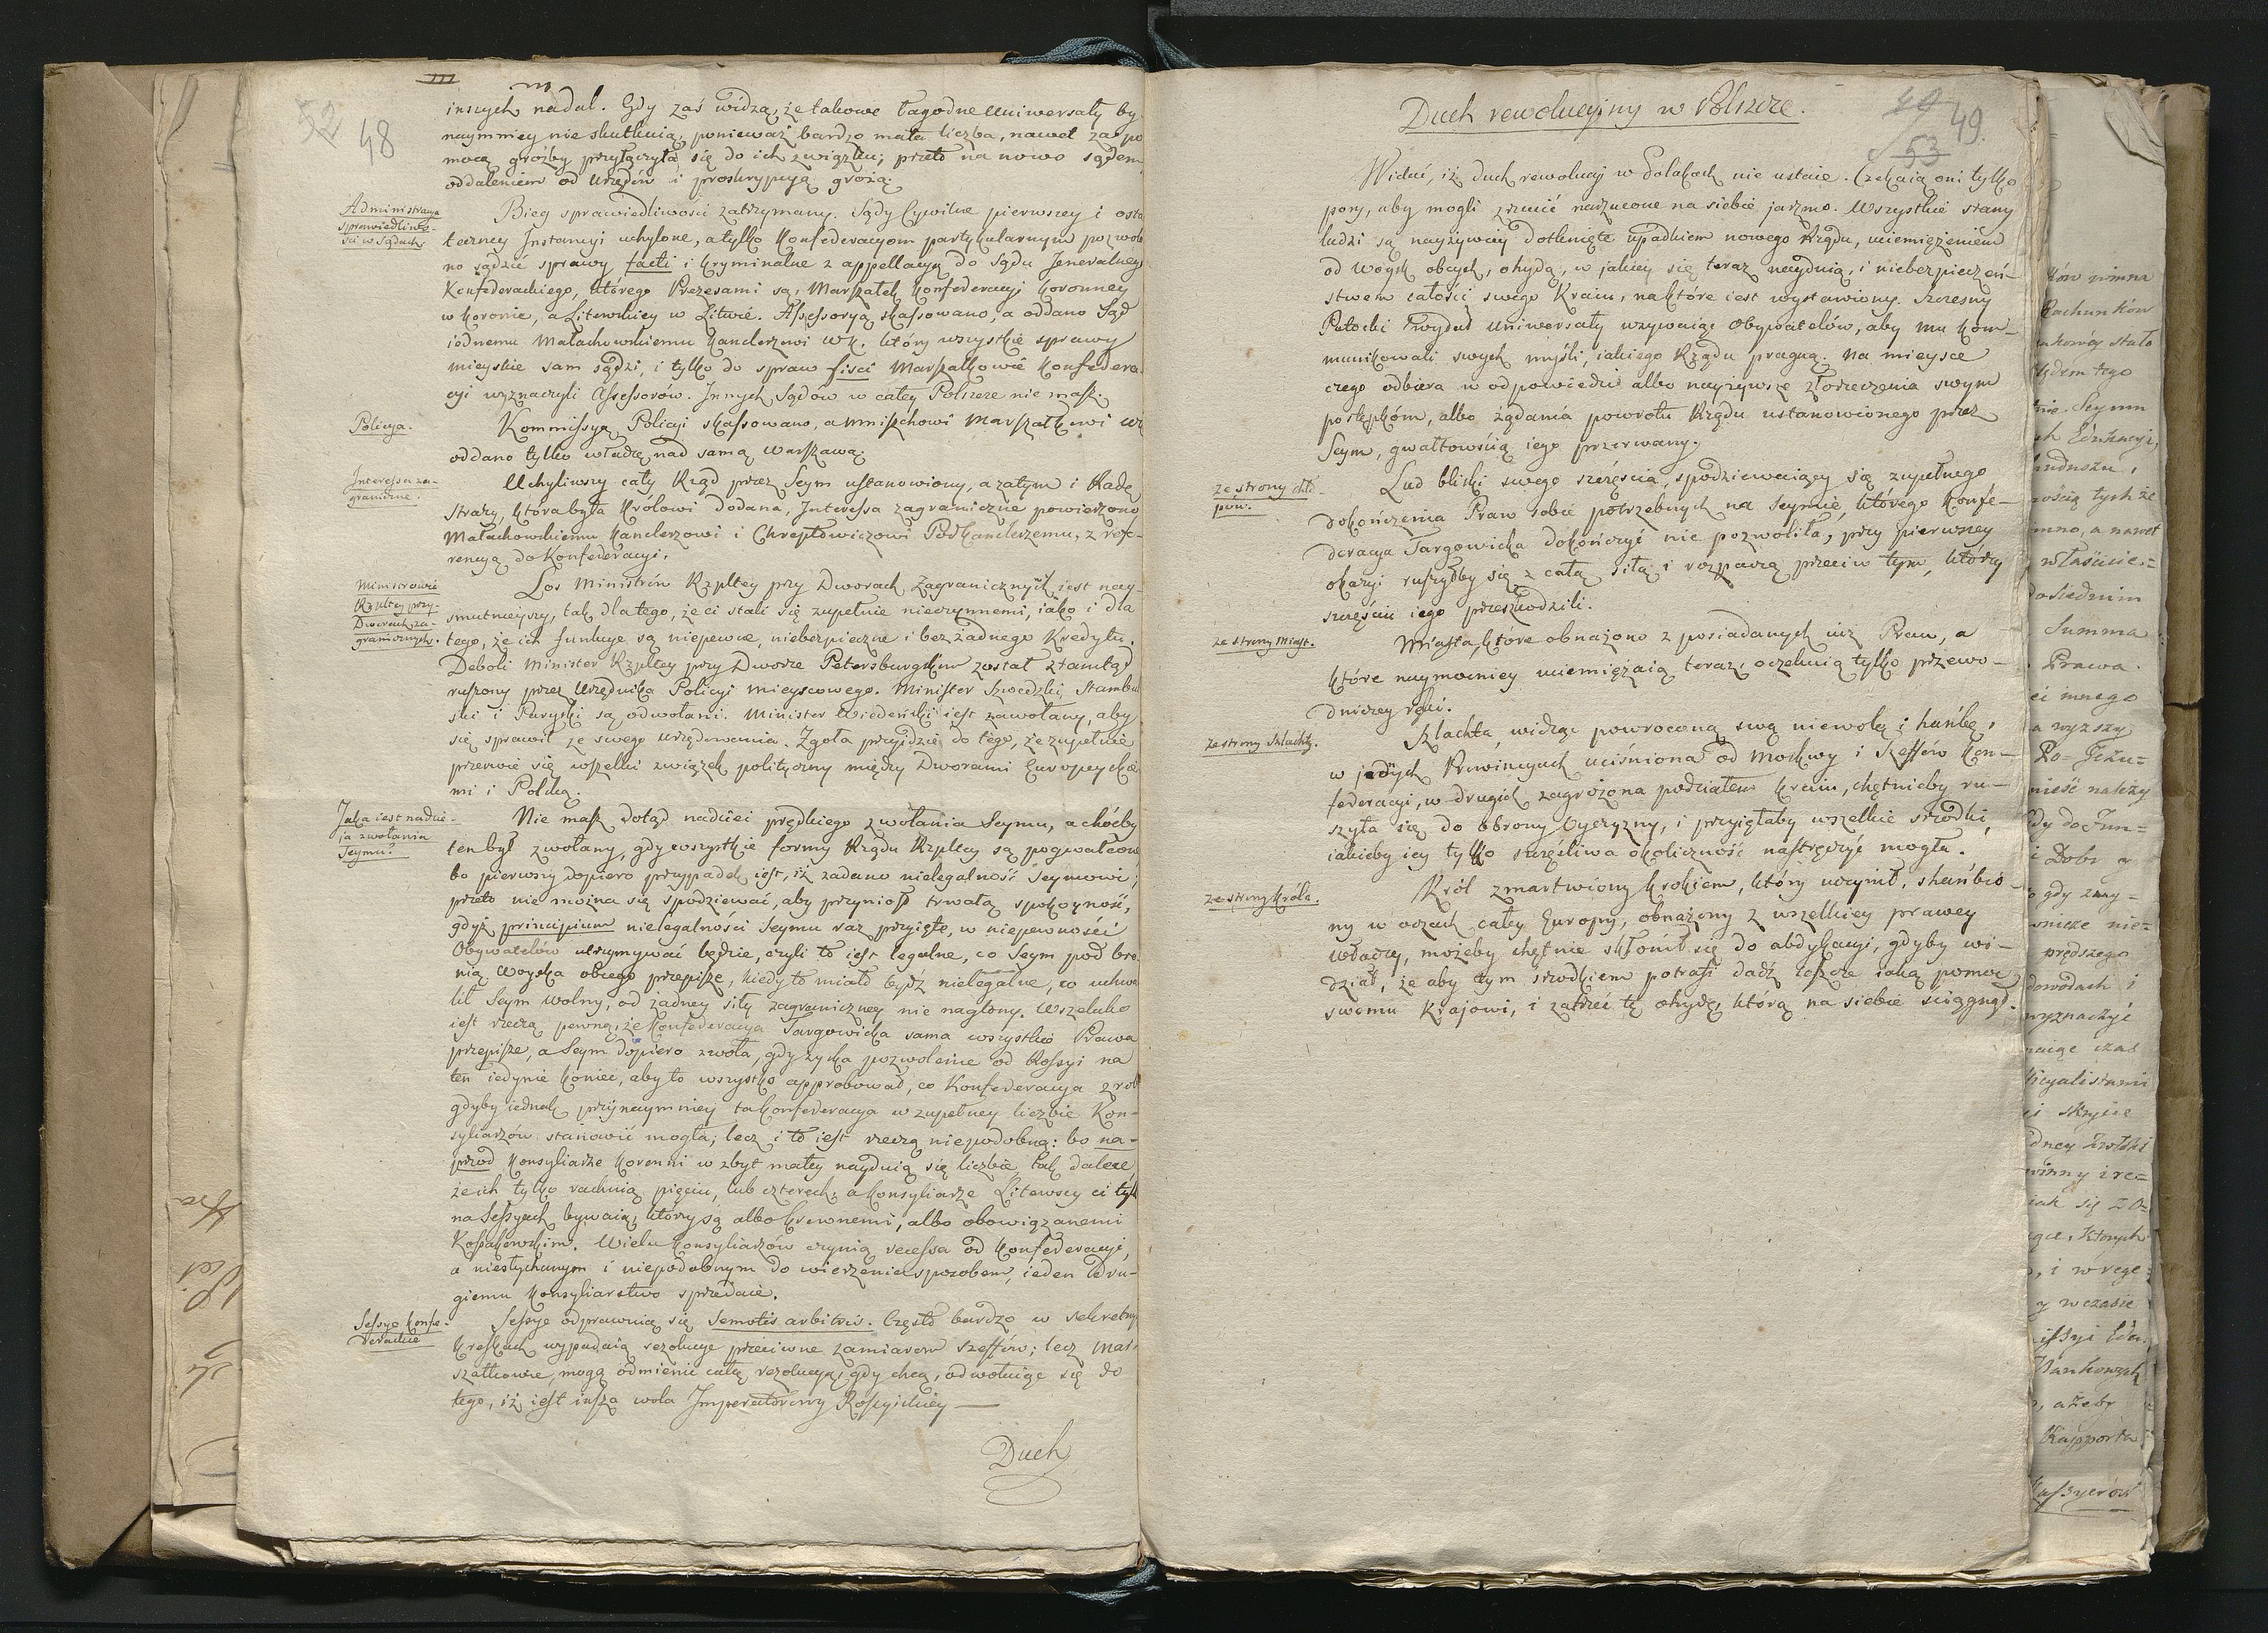 52 48
inszych nadal. Gdy zaś widzą, że takowe łagodne Uniwersały by
naymniey nie skutkuią, ponieważ bardzo mała liczba, nawet za po
mocą groźby przyłączyła się do ich związku; przeto na nowo sądem
oddaleniem od Urzędów i proskrypcyą grożą.
Administracya
sprawiedliwo-
ści w Sądach
Bieg sprawiedliwości zatrzymany. Sądy Cywilne pierwszey i osta
teczney Instancyi uchylone, a tylko Konfederacyom partykularnym pozwolo
no sądzić sprawy facti i kryminalne z appellacyą do Sądu Jeneralnego
Konfederackiego, którego Prezesami są, Marszałek Konfederacyi Koronney
w Koronie, a Litewskiey w Litwie. Assessoryą skassowano, a oddano Sąd
iednemu Małachowskiemu Kanclerzowi WK. który wszystkie sprawy
mieyskie sam sądzi, i tylko do spraw fisci Marszałkowie Konfedera
cyi wyznaczyli Assessorów. Innych Sądów w całey Polszcze nie masz.
Policya.
Kommissyą Policyi skassowano, a Mniszchowi Marszałkowi WK
oddano tylko władzę nad samą Warszawą.
Interessa za-
graniczne.
Uchyliwszy cały Rząd przez Seym ustanowiony, a zatym i Radę
Straży, która była Królowi dodana, Interessa zagraniczne powierzono
Małachowskiemu Kanclerzowi i Chreptowiczowi Podkanclerzemu, z refe-
rencyą do Konfederacyi.
Ministrowie
Rzpltey przy
Dworach za-
granicznych.
Los Ministrów Rzpltey przy Dworach Zagranicznych jest nay-
smutnieyszy, tak dla tego, że ci stali się zupełnie nieczynnemi, iako i dla
tego, że ich funkcye są niepewne, niebezpieczne i bez żadnego Kredytu.
Deboli Minister Rzpltey przy Dworze Petersburgskim został ztamtąd
ruszony przez Urzędnika Policyi mieyscowego. Minister Szwedzki, Stambul
ski i Paryski są odwołani. Minister Wiedeński iest zawołany, aby
się sprawił ze swego urzędowania. Zgoła przyidzie do tego, że zupełnie
przerwie się wszelki związek polityczny między Dworami Europeyskie
mi i Polską.
Jaka iest nadzie-
ja zwołania
Seymu?
Nie masz dotąd nadziei prędkiego zwołania Seymu, a choćby
ten był zwołany, gdy wszystkie formy Rządu Rzpltey są pogwałcone
bo pierwszy dopiero przypadek iest, iż zadano nielegalność Seymowi;
przeto nie można się spodziewać, aby przyniosł trwałą spokoyność,
gdyż principium nielegalności Seymu raz przyięte, w niepewności
Obywatelów utrzymywać będzie, czyli to iest legalne, co Seym pod bro
nią woyska obcego przepisze, kiedy to miało bydź nielegalne, co uchwa
lił Seym wolny, od żadney siły zagraniczney nie naglony. Wszelako
iest rzeczą pewną, że Konfederacya Targowicka sama wszystkie Prawa
przepisze, a Seym dopiero zwoła, gdy zyska pozwolenie od Rossyi na
ten iedynie koniec, aby to wszystko approbował, co Konfederacya zrob
gdyby iednak przynaymniey ta konfederacya w zupełney liczbie Kon-
syliarzów stanowić mogła; lecz i to iest rzeczą niepodobną: bo na-
przod Konsyliarze Koronni w zbyt małey nayduią się liczbie, tak dalece
że ich tylko rachuią pięciu, lub czterech, a Konsyliarze Litewscy ci tylk
na Sessyach bywaią, którzy są albo krewnemi, albo obowiązanemi
Kossakowskim. Wielu Konsyliarzów czynią recessa od Konfederacyi,
a niesłychanym i niepodobnym do wierzenia sposobem, ieden dru-
giemu Konsyliarstwo sprzedaie.
Sessye Konfe-
derackie
Sessye odprawuią się Semotis arbitris. Często bardzo w sekretny
kreskach wypadaią rezolucye przeciwne zamiarom szeffów; lecz Mar-
szałkowie, mogą odmienić całą rezolucyą, gdy chcą, odwołuiąc się do
tego, iż iest insza wola Imperatorowy Rossyiskiey —
Duch
Duch rewolucyiny w Polszcze.
49.
53
Widać, iż duch rewolucyi w Polakach nie ustaie. Czekaią oni tylko
pory, aby mogli zrzucić narzucone na siebie jarzmo. Wszystkie stany
ludzi są nayżywiey dotknięte upadkiem nowego Rządu, uciemiężeniem
od woysk obcych, ohydą, w jakiey się teraz nayduią, i niebezpieczeń-
stwem całości swego Kraiu, na które iest wystawiony. Szczęsny
Potocki wydał Uniwersały wzywaiąc Obywatelów, aby mu kom-
munikowali swych myśli, iakiego Rządu pragną. Na mieysce
czego odbiera w odpowiedzi albo nayżywsze złorzeczenia swym
postępkóm, albo żądania powrotu Rządu ustanowionego przez
Seym, gwałtownością iego przerwany.
ze strony chło-
pów.
Lud bliski swego szczęścia, spodziewaiący się zupełnego
dokończenia Praw sobie potrzebnych na Seymie, którego Konfe-
deracya Targowicka dokończyć nie pozwoliła, przy pierwszey
okazyi ruszyłby się z całą siłą i rozpaczą przeciw tym, którzy
szczęściu iego przeszkodzili.
ze strony Miast.
Miasta, które obnażono z posiadanych iuż Praw, a
które naymocniey uciemiężaią teraz, oczekuią tylko przewo-
dniczey ręki.
ze strony Szlachty.
Szlachta, widząc powroconą swą niewolą i hańbę,
w jednych Prowincyach uciśniona od Moskwy i Szeffów Kon-
federacyi, w drugich zagrożona podziałem kraiu, chętnieby ru-
szyła się do obrony Oyczyzny, i przyiętaby wszelkie srzodki,
iakieby iey tylko szczęśliwa okoliczność nastręczyć mogła.
ze strony Króla.
Król zmartwiony krokiem, który uczynił, shańbio-
ny w oczach całey Europy, obnażony z wszelkiey prawey
władzy, możeby chętnie skłonił się do abdykacyi, gdyby wi-
dział, że aby tym srzodkiem potrafi dadź ieszcze iaką pomoc
swemu Krajowi, i zatrzeć tę ohydę, którą na siebie ściągnął.